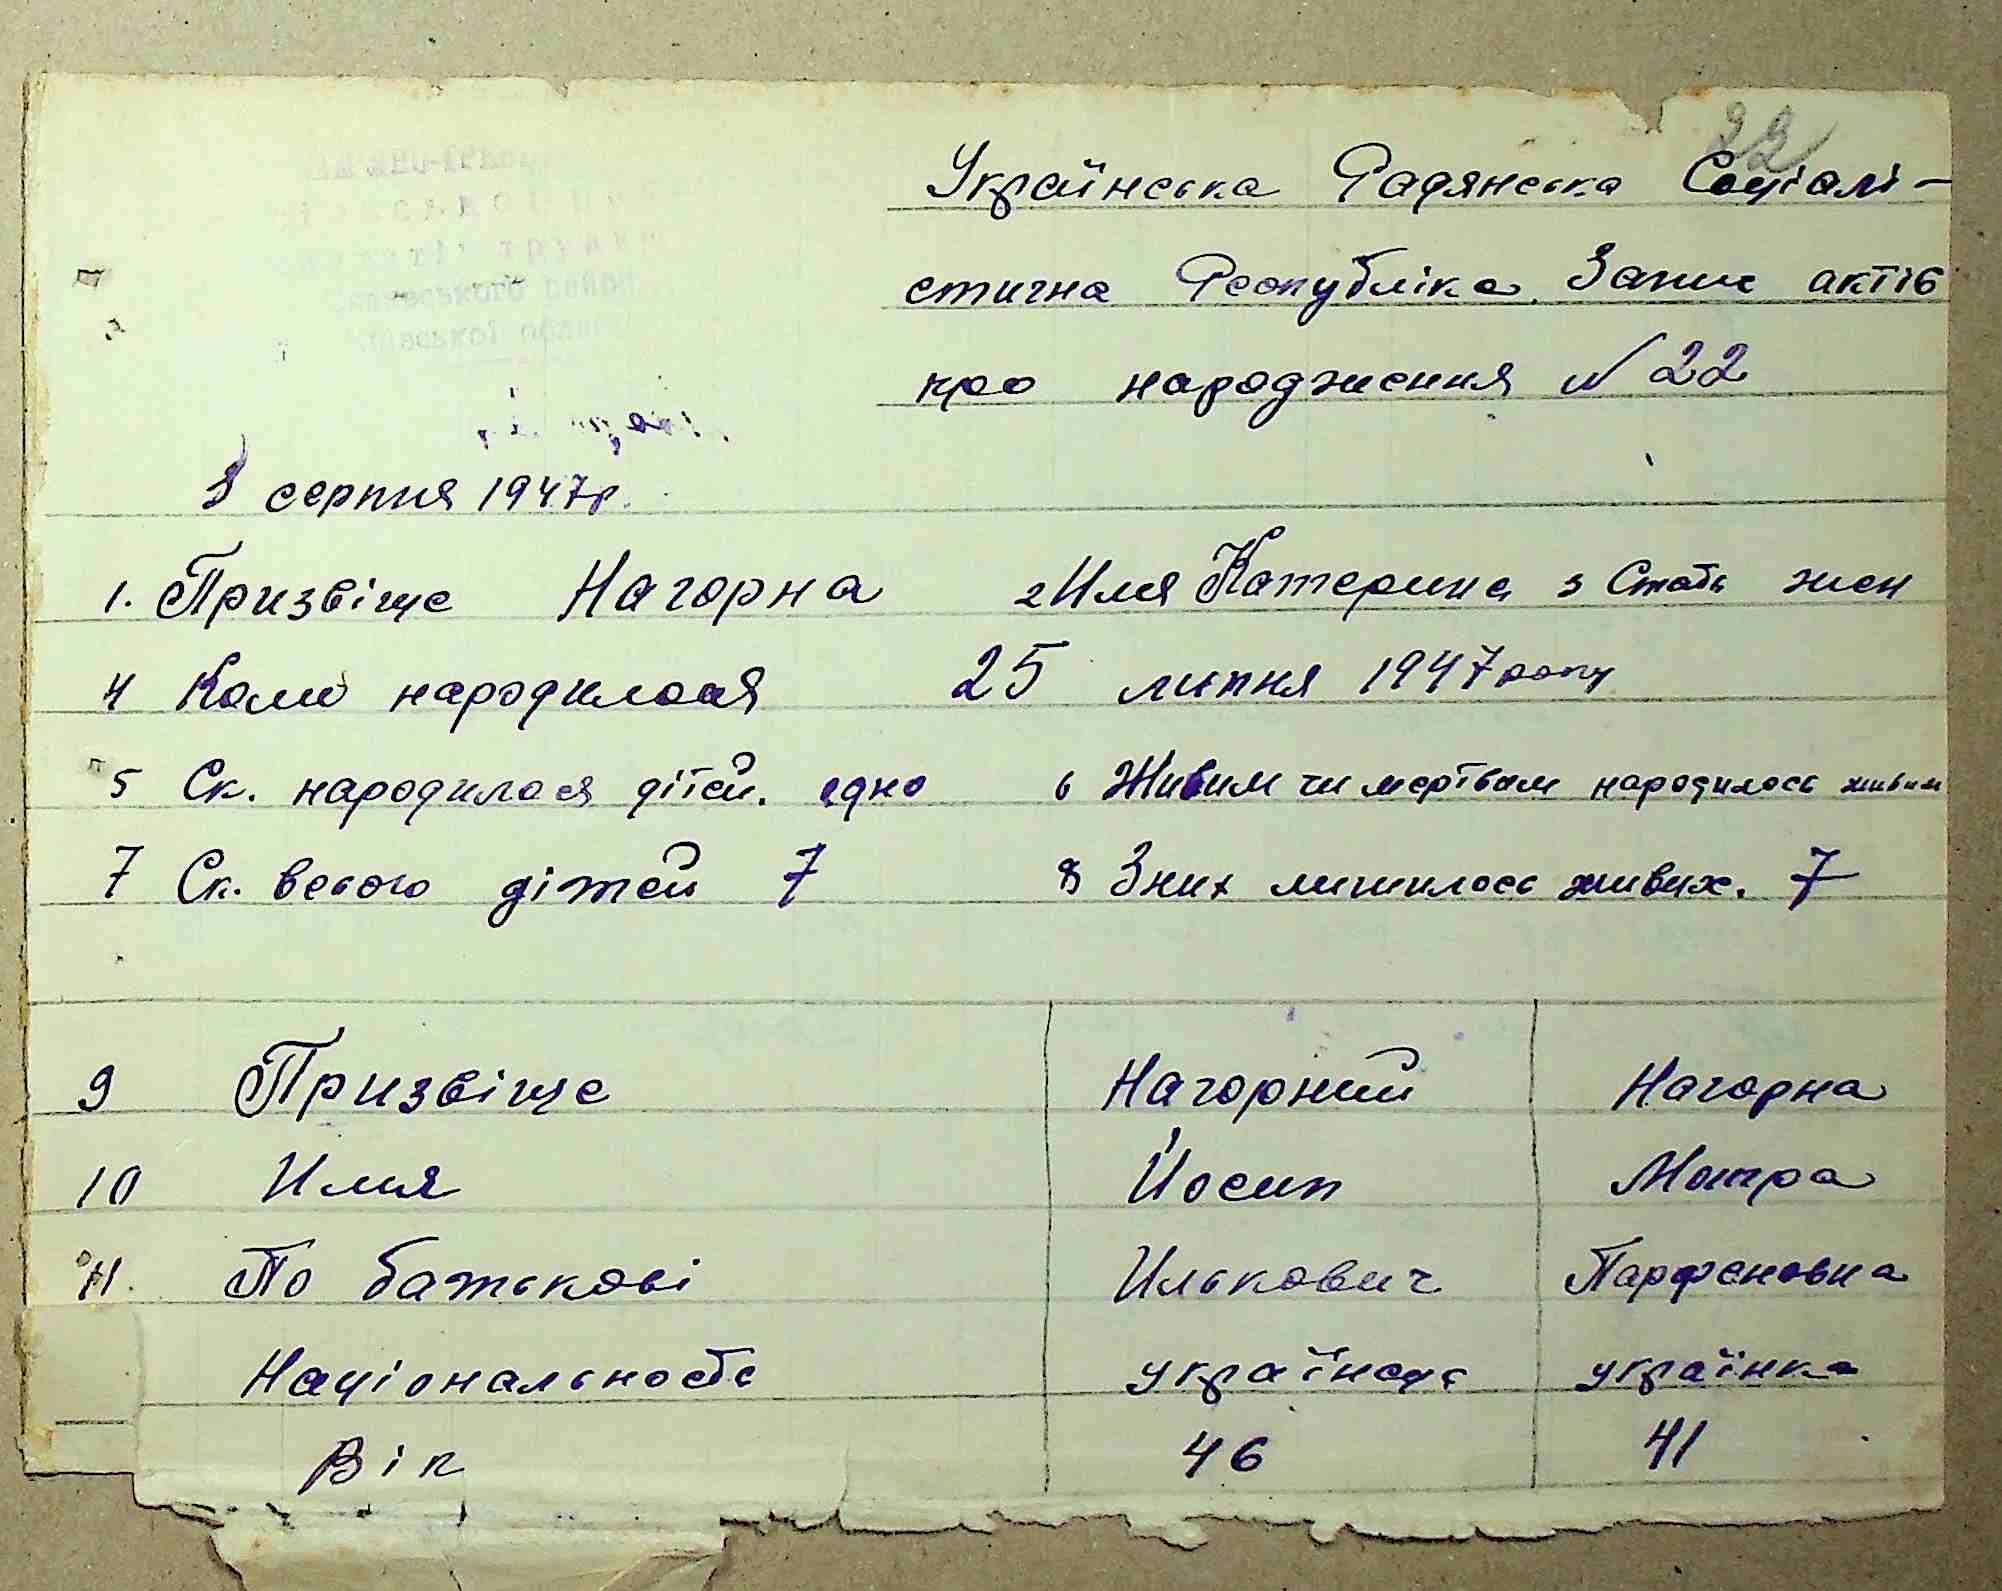 22
Українська Радянська Соціалі-
стична Республіка. Запис актів
про народження N 22
серпня 1947р.
1. Призвіще Нагорна 2 Имя Катерина 3 Стать жен
4 Коли народилося 25 липня 1947 року
5 Ск. народилося дітей. одно 6 Живим чи мертвим народилось живим
7 Ск. всього дітей 7 8 З них лишилось живих. 7
9 Призвіще Нагорний Нагорна
10 Имя Йосип Мотра
11. По батькові Илькович Парфеновна
Національность українець українка
Вік 46 41